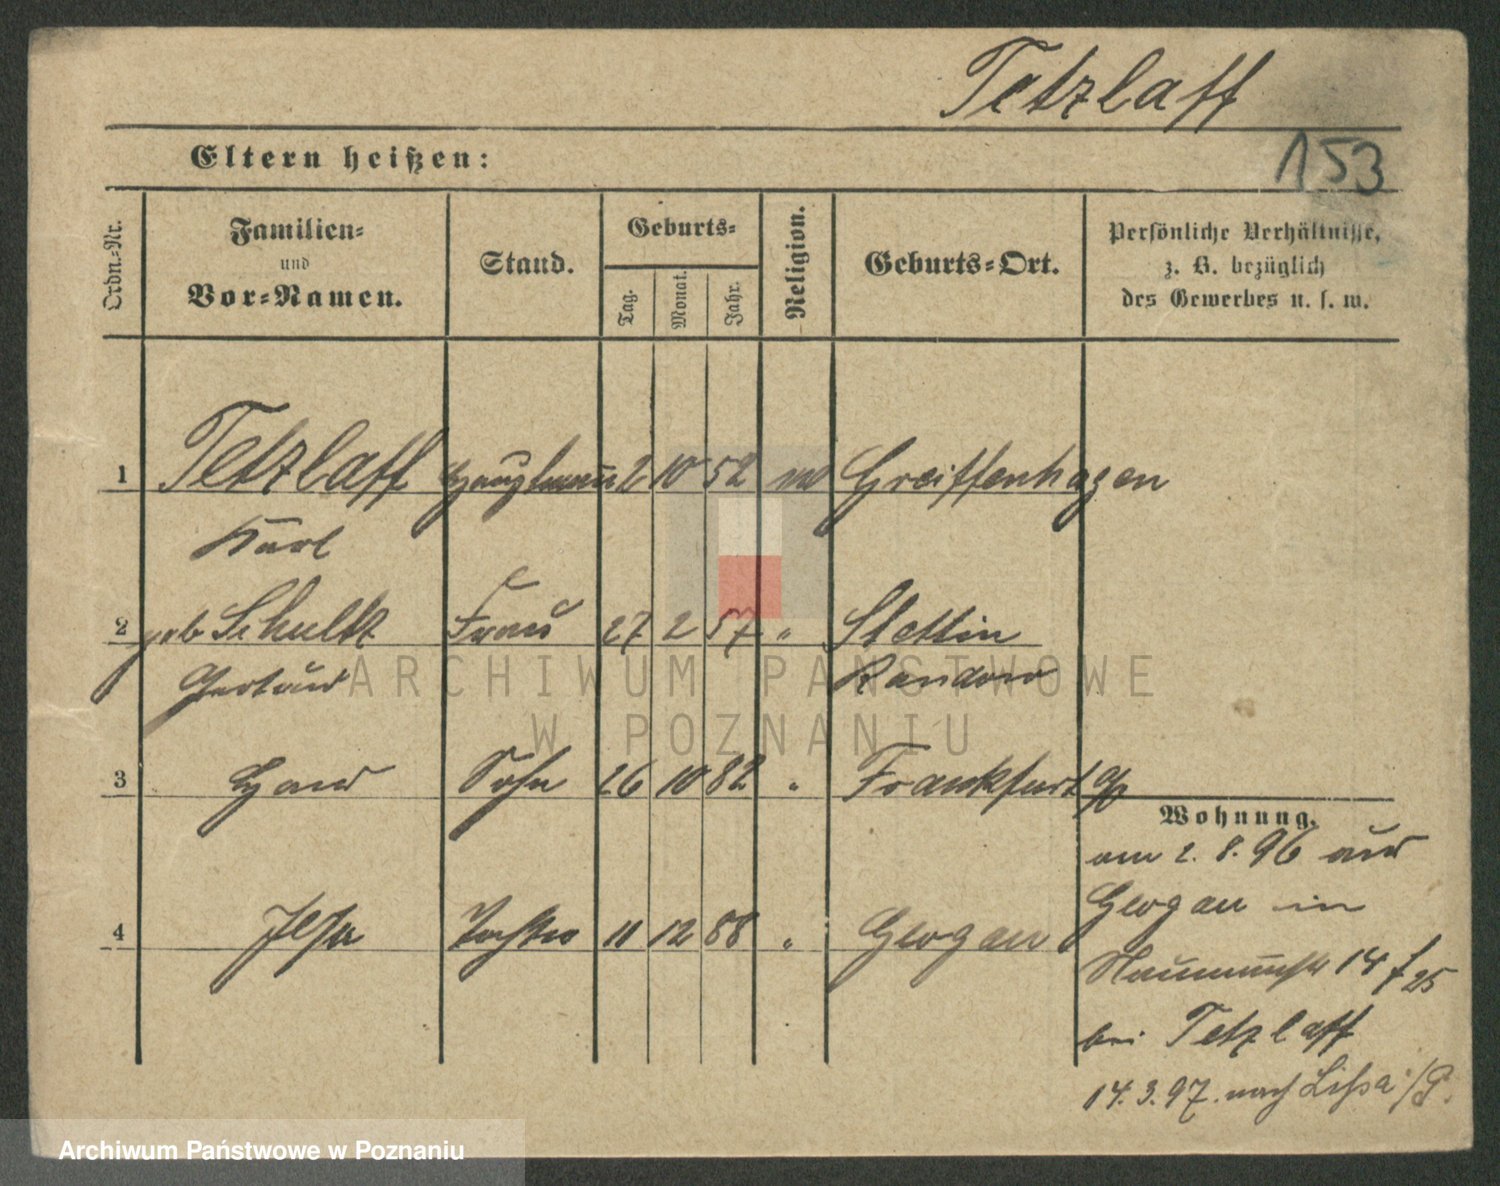 Tetzlaff
Eltern heißen:
153
Ordn.-Nr.
Familien-
und
Vor-Namen.
Stand.
Geburts-
Tag.
Monat.
Jahr.
Religion.
Geburts-Ort.
Persönliche Verhältnisse,
z. B. bezüglich
des Gewerbes u. s. w.
1 Tetzlaff Hauptmann 2 10 52 Greiffenhagen
Karl
2 geb Schultz Frau 27 2 57 " Stettin
Gertrud Randow
3 Hans Sohn 26 10 82 " Frankfurt a/O
Wohnung.
am 2. 8. 96 aus
4 Ilse Tochter 11 12 88 " Glogau
Glogau in
Naumannstr 14
bei Tetzlaff
14. 3. 97. nach Lissa i/P.
ARCHIWUM PAŃSTWOWE
W POZNANIU
Archiwum Państwowe w Poznaniu